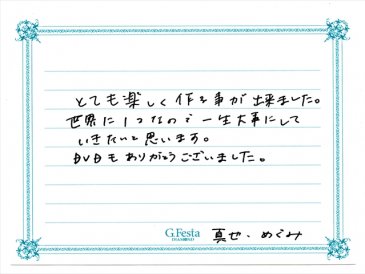 とても楽しく作る事が出来ました。
世界に1つなので一生大事にして
いきたいと思います。
DVDもありがとうございました。
G.Festa
DIAMOND
真也・めぐみ